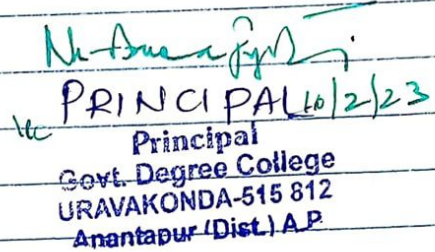 PRINCIPAL 10/2/23
Principal
Govt. Degree College
URAVAKONDA-515 812
Anantapur (Dist.) A.P.